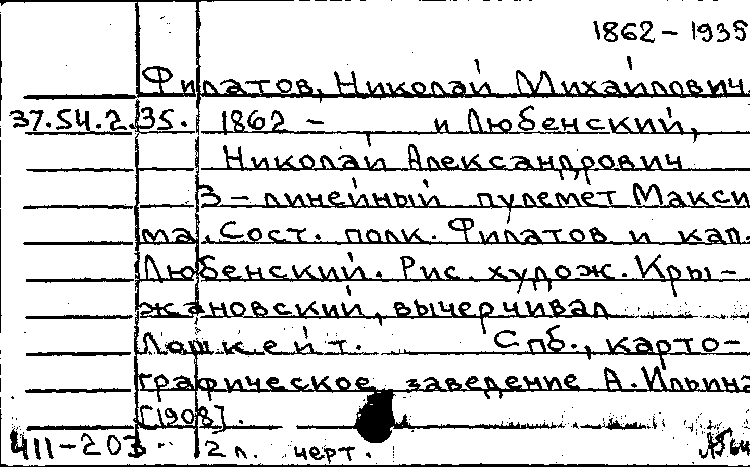 1862 - 1935
Филатов, Николай Михайлович
37.54.2.35. 1862 - , и Любенский,
Николай Александрович
3-линейный пулемет Макси
ма. Сост. полк. Филатов и кап.
Любенский. Рис. худож. Кры-
жановский, вычерчивал
Лашкейт. Спб., карто-
графическое заведение А. Ильина
[1908].
411-203 2 л. черт.